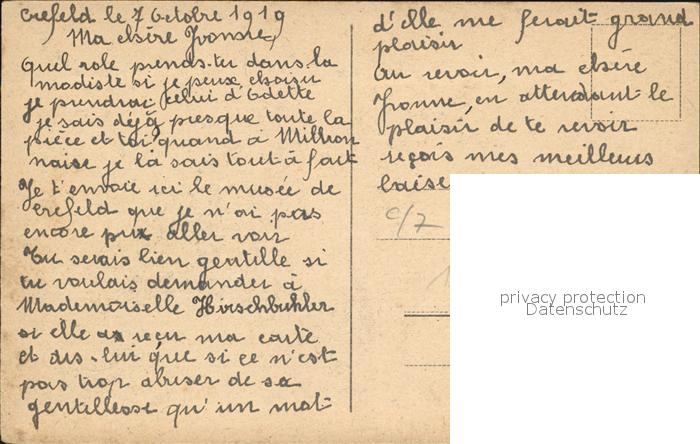 Crefeld le 7 Octobre 1919
Ma chère Yvonne,
Quel role prends-tu dans la
modiste si je peux choisir
je prendrai celui d'Odette
je sais déjà presque toute la
pièce et toi? quand à Million
naise je la sais tout à fait
Je t'envoie ici le musée de
Crefeld que je n'ai pas
encore pu aller voir
Tu serais bien gentille si
tu voulais demander à
Mademoiselle Hirschbuhler
si elle a reçu ma carte
et dis-lui que si ce n'est
pas trop abuser de sa
gentillesse qu'un mot
d'elle me ferait grand
plaisir
Au revoir, ma chère
Yvonne, en attendant le
plaisir de te revoir
reçois mes meilleurs
baise
c/7
privacy protection
Datenschutz